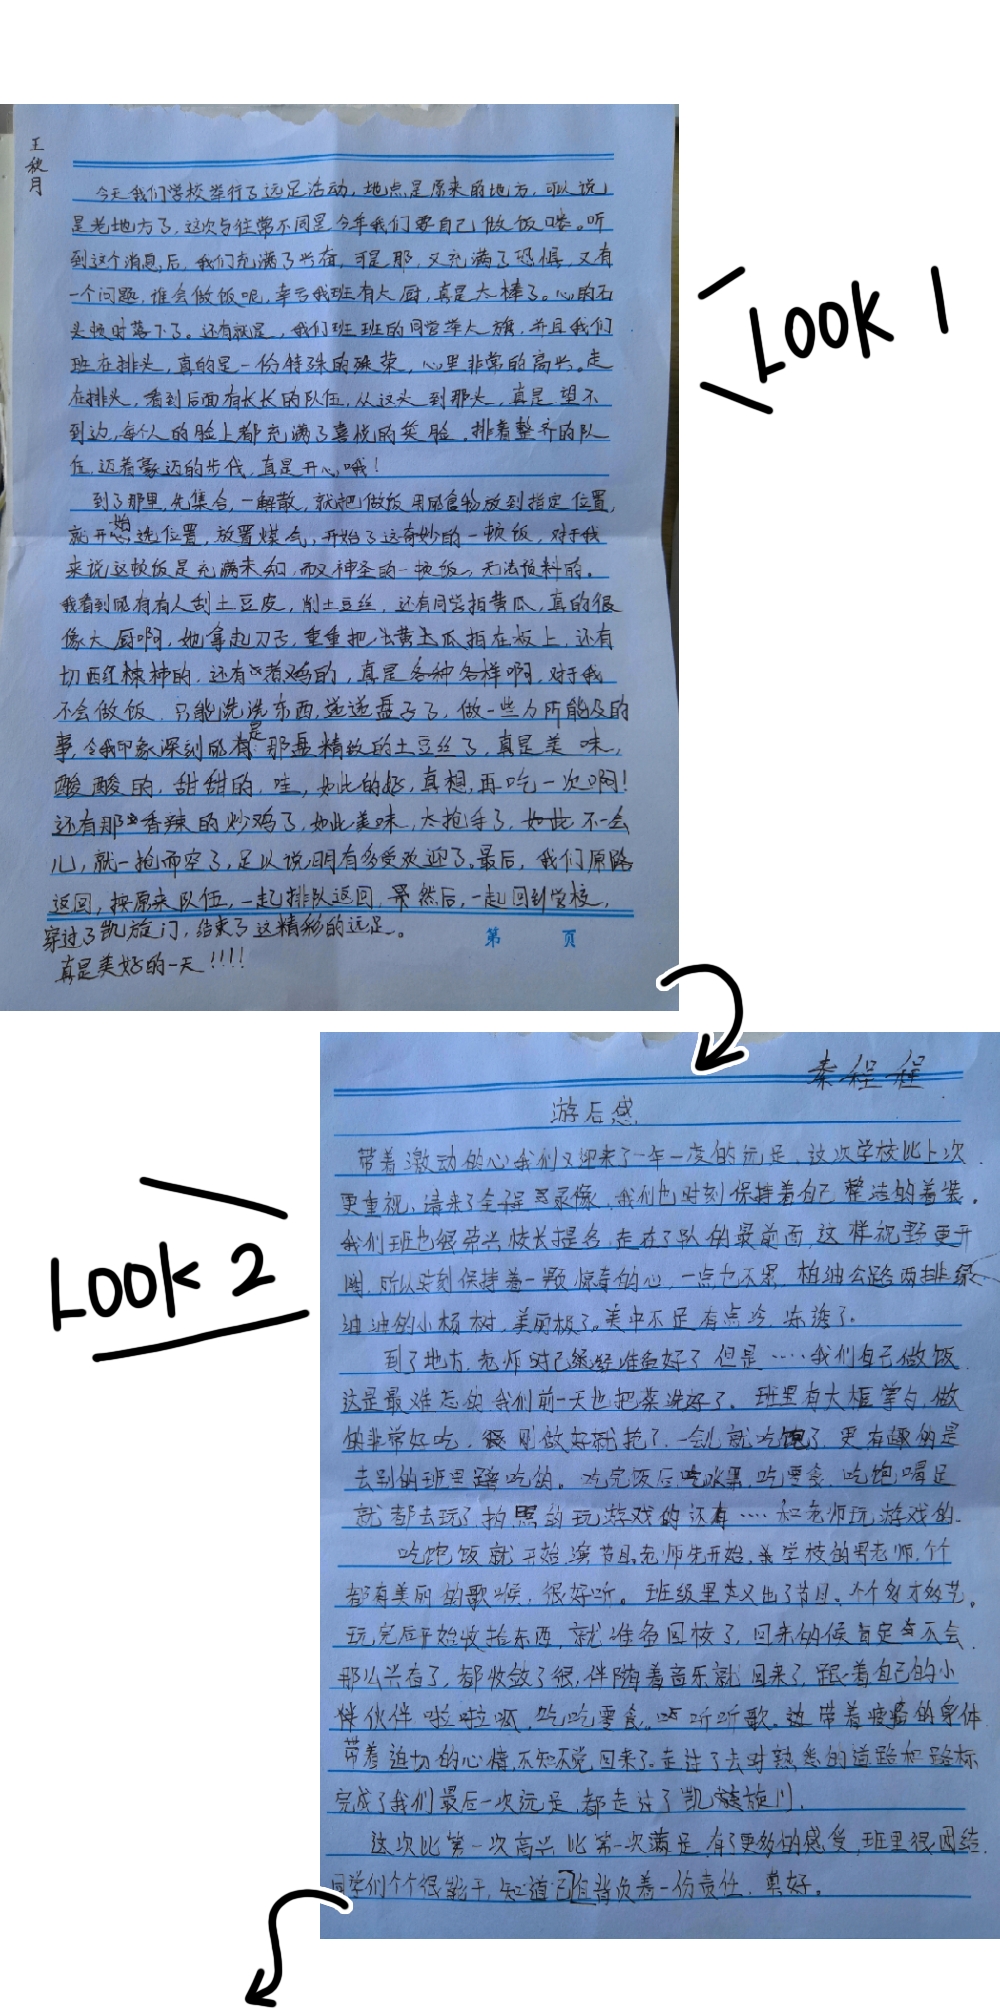 王秋月
今天我们学校举行了远足活动，地点是原来的地方，可以说
是老地方了，这次与往常不同是，今年我们要自己做饭喽。听
到这个消息后，我们充满了兴奋，可是那，又充满了恐惧，又有
一个问题，谁会做饭呢，幸亏我班有大厨，真是太棒了。心的石
头顿时落下了。还有就是，我们班班的同学举大旗，并且我们
班在排头，真的是一份特殊的殊荣，心里非常的高兴。走
在排头，看到后面有长长的队伍，从这头到那头，真是望不
到边，每个人的脸上都充满了喜悦的笑脸。排着整齐的队
伍，迈着豪迈的步伐，真是开心哦！
到了那里，先集合，一解散，就把做饭用的食物放到指定位置，
就开始选位置，放置煤气，开始了这奇妙的一顿饭，对于我
来说这顿饭是充满未知，而又神圣的一顿饭，无法预料的。
我看到的有有人刮土豆皮，削土豆丝，还有同学拍黄瓜，真的很
像大厨啊，她拿起刀子，重重把黄瓜拍在板上，还有
切西红柿的，还有煮鸡的，真是各种各样啊，对于我
不会做饭，只能洗洗东西，递递盘子了，做一些力所能及的
事，令我印象深刻的是那盘精致的土豆丝了，真是美味，
酸酸的，甜甜的，哇，如此的好，真想再吃一次啊！
还有那香辣的炒鸡了，如此美味，太抢手了，不一会
儿，就一抢而空了，足以说明有多受欢迎了。最后，我们原路
返回，按原来队伍，一起排队返回，然后，一起回到学校，
穿过了凯旋门，结束了这精彩的远足。
真是美好的一天！！！！
第 页
LOOK 1
秦程程
游后感
带着激动的心我们又迎来了一年一度的远足，这次学校比上次
更重视，请来了全程录像，我们也时刻保持着自己整洁的着装。
我们班也很荣兴校长提名，走在了队的最前面，这样视野更开
阔，所以时刻保持着一颗惊奇的心，一点也不累，柏油公路两排绿
油油的小杨树，美丽极了。美中不足有点冷，冻透了。
LOOK 2
到了地方，老师时已经准备好了但是……我们自己做饭
这是最难忘的我们前一天也把菜洗好了。班里有大框掌勺，做
的非常好吃，刚做好就抢了，一会儿就吃饱了更有趣的是
去别的班里蹭吃的。吃完饭后吃水果，吃零食，吃饱喝足
就都去玩了拍照的玩游戏的还有……和老师玩游戏的。
吃饱饭就开始演节目老师先开始，学校的男老师，个个
都有美丽的歌喉，很好听。班级里又出了节目。个个多才多艺。
玩完后开始收拾东西，就准备回校了，回来的候肯定不会
那么兴奋了，都收敛了很，伴随着音乐就回来了，跟着自己的小
伙伴啦啦呱，吃吃零食，听听歌，边带着疲惫的身体
带着迫切的心情，不知不觉回来了。走过了去时熟悉的道路和路标
完成了我们最后一次远足，都走过了凯旋门。
这次比第一次高兴比第一次满足，有了更多的感受，班里很团结
同学们个个很能干，知道自己背负着一份责任，真好。